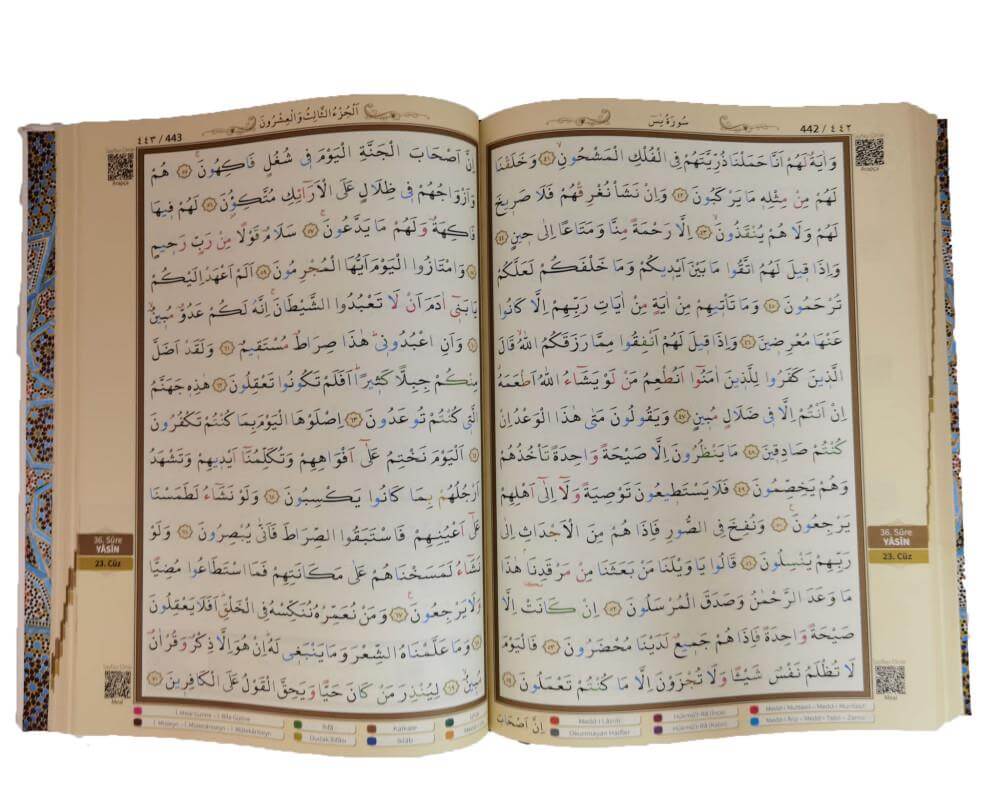 سُورَةُ يٰسٓ
442 / ٤٤٢
وَاٰيَةٌ لَهُمْ اَنَّا حَمَلْنَا ذُرِّيَّتَهُمْ فِي الْفُلْكِ الْمَشْحُونِۙ ﴿٤١﴾ وَخَلَقْنَا
لَهُمْ مِنْ مِثْلِه۪ مَا يَرْكَبُونَ ﴿٤٢﴾ وَاِنْ نَشَأْ نُغْرِقْهُمْ فَلَا صَر۪يخَ
لَهُمْ وَلَا هُمْ يُنْقَذُونَۙ ﴿٤٣﴾ اِلَّا رَحْمَةً مِنَّا وَمَتَاعًا اِلٰى ح۪ينٍ ﴿٤٤﴾
وَاِذَا ق۪يلَ لَهُمُ اتَّقُوا مَا بَيْنَ اَيْد۪يكُمْ وَمَا خَلْفَكُمْ لَعَلَّكُمْ
تُرْحَمُونَ ﴿٤٥﴾ وَمَا تَأْت۪يهِمْ مِنْ اٰيَةٍ مِنْ اٰيَاتِ رَبِّهِمْ اِلَّا كَانُوا
عَنْهَا مُعْرِض۪ينَ ﴿٤٦﴾ وَاِذَا ق۪يلَ لَهُمْ اَنْفِقُوا مِمَّا رَزَقَكُمُ اللّٰهُۙ قَالَ
الَّذ۪ينَ كَفَرُوا لِلَّذ۪ينَ اٰمَنُٓوا اَنُطْعِمُ مَنْ لَوْ يَشَٓاءُ اللّٰهُ اَطْعَمَهُۗ
اِنْ اَنْتُمْ اِلَّا ف۪ي ضَلَالٍ مُب۪ينٍ ﴿٤٧﴾ وَيَقُولُونَ مَتٰى هٰذَا الْوَعْدُ اِنْ
كُنْتُمْ صَادِق۪ينَ ﴿٤٨﴾ مَا يَنْظُرُونَ اِلَّا صَيْحَةً وَاحِدَةً تَأْخُذُهُمْ
وَهُمْ يَخِصِّمُونَ ﴿٤٩﴾ فَلَا يَسْتَط۪يعُونَ تَوْصِيَةً وَلَٓا اِلٰٓى اَهْلِهِمْ
يَرْجِعُونَ۟ ﴿٥٠﴾ وَنُفِخَ فِي الصُّورِ فَاِذَا هُمْ مِنَ الْاَجْدَاثِ اِلٰى
رَبِّهِمْ يَنْسِلُونَ ﴿٥١﴾ قَالُوا يَا وَيْلَنَا مَنْ بَعَثَنَا مِنْ مَرْقَدِنَاۢ هٰذَا
مَا وَعَدَ الرَّحْمٰنُ وَصَدَقَ الْمُرْسَلُونَ ﴿٥٢﴾ اِنْ كَانَتْ اِلَّا
صَيْحَةً وَاحِدَةً فَاِذَا هُمْ جَم۪يعٌ لَدَيْنَا مُحْضَرُونَ ﴿٥٣﴾ فَالْيَوْمَ
لَا تُظْلَمُ نَفْسٌ شَيْـًٔا وَلَا تُجْزَوْنَ اِلَّا مَا كُنْتُمْ تَعْمَلُونَ ﴿٥٤﴾
اِنَّ اَصْحَابَ
36. Sûre
YÂSÎN
23. Cüz
Meal
Medd-i Lâzım
Okunmayan Harfler
اَلْجُزْءُ الثَّالِثُ وَالْعِشْرُونَ
٤٤٣ / 443
اِنَّ اَصْحَابَ الْجَنَّةِ الْيَوْمَ ف۪ي شُغُلٍ فَاكِهُونَۚ ﴿٥٥﴾ هُمْ
وَاَزْوَاجُهُمْ ف۪ي ظِلَالٍ عَلَى الْاَرَٓائِكِ مُتَّكِؤُ۫نَ ﴿٥٦﴾ لَهُمْ ف۪يهَا
فَاكِهَةٌ وَلَهُمْ مَا يَدَّعُونَۚ ﴿٥٧﴾ سَلَامٌ قَوْلًا مِنْ رَبٍّ رَح۪يمٍ
﴿٥٨﴾ وَامْتَازُوا الْيَوْمَ اَيُّهَا الْمُجْرِمُونَ ﴿٥٩﴾ اَلَمْ اَعْهَدْ اِلَيْكُمْ
يَا بَن۪ٓي اٰدَمَ اَنْ لَا تَعْبُدُوا الشَّيْطَانَۚ اِنَّهُ لَكُمْ عَدُوٌّ مُب۪ينٌۙ
﴿٦٠﴾ وَاَنِ اعْبُدُون۪يۜ هٰذَا صِرَاطٌ مُسْتَق۪يمٌ ﴿٦١﴾ وَلَقَدْ اَضَلَّ
مِنْكُمْ جِبِلًّا كَث۪يرًاۜ اَفَلَمْ تَكُونُوا تَعْقِلُونَ ﴿٦٢﴾ هٰذِه۪ جَهَنَّمُ
الَّت۪ي كُنْتُمْ تُوعَدُونَ ﴿٦٣﴾ اِصْلَوْهَا الْيَوْمَ بِمَا كُنْتُمْ تَكْفُرُونَ
﴿٦٤﴾ اَلْيَوْمَ نَخْتِمُ عَلٰٓى اَفْوَاهِهِمْ وَتُكَلِّمُنَٓا اَيْد۪يهِمْ وَتَشْهَدُ
اَرْجُلُهُمْ بِمَا كَانُوا يَكْسِبُونَ ﴿٦٥﴾ وَلَوْ نَشَٓاءُ لَطَمَسْنَا
عَلٰٓى اَعْيُنِهِمْ فَاسْتَبَقُوا الصِّرَاطَ فَاَنّٰى يُبْصِرُونَ ﴿٦٦﴾ وَلَوْ
نَشَٓاءُ لَمَسَخْنَاهُمْ عَلٰى مَكَانَتِهِمْ فَمَا اسْتَطَاعُوا مُضِيًّا
وَلَا يَرْجِعُونَ۟ ﴿٦٧﴾ وَمَنْ نُعَمِّرْهُ نُنَكِّسْهُ فِي الْخَلْقِۜ اَفَلَا يَعْقِلُونَ
﴿٦٨﴾ وَمَا عَلَّمْنَاهُ الشِّعْرَ وَمَا يَنْبَغ۪ي لَهُۜ اِنْ هُوَ اِلَّا ذِكْرٌ وَقُرْاٰنٌ
مُب۪ينٌۙ ﴿٦٩﴾ لِيُنْذِرَ مَنْ كَانَ حَيًّا وَيَحِقَّ الْقَوْلُ عَلَى الْكَافِر۪ينَ ﴿٧٠﴾
36. Sûre
YÂSÎN
23. Cüz
Meal
İhfâ
Dudak İhfâsı
Kalkale
İklâb